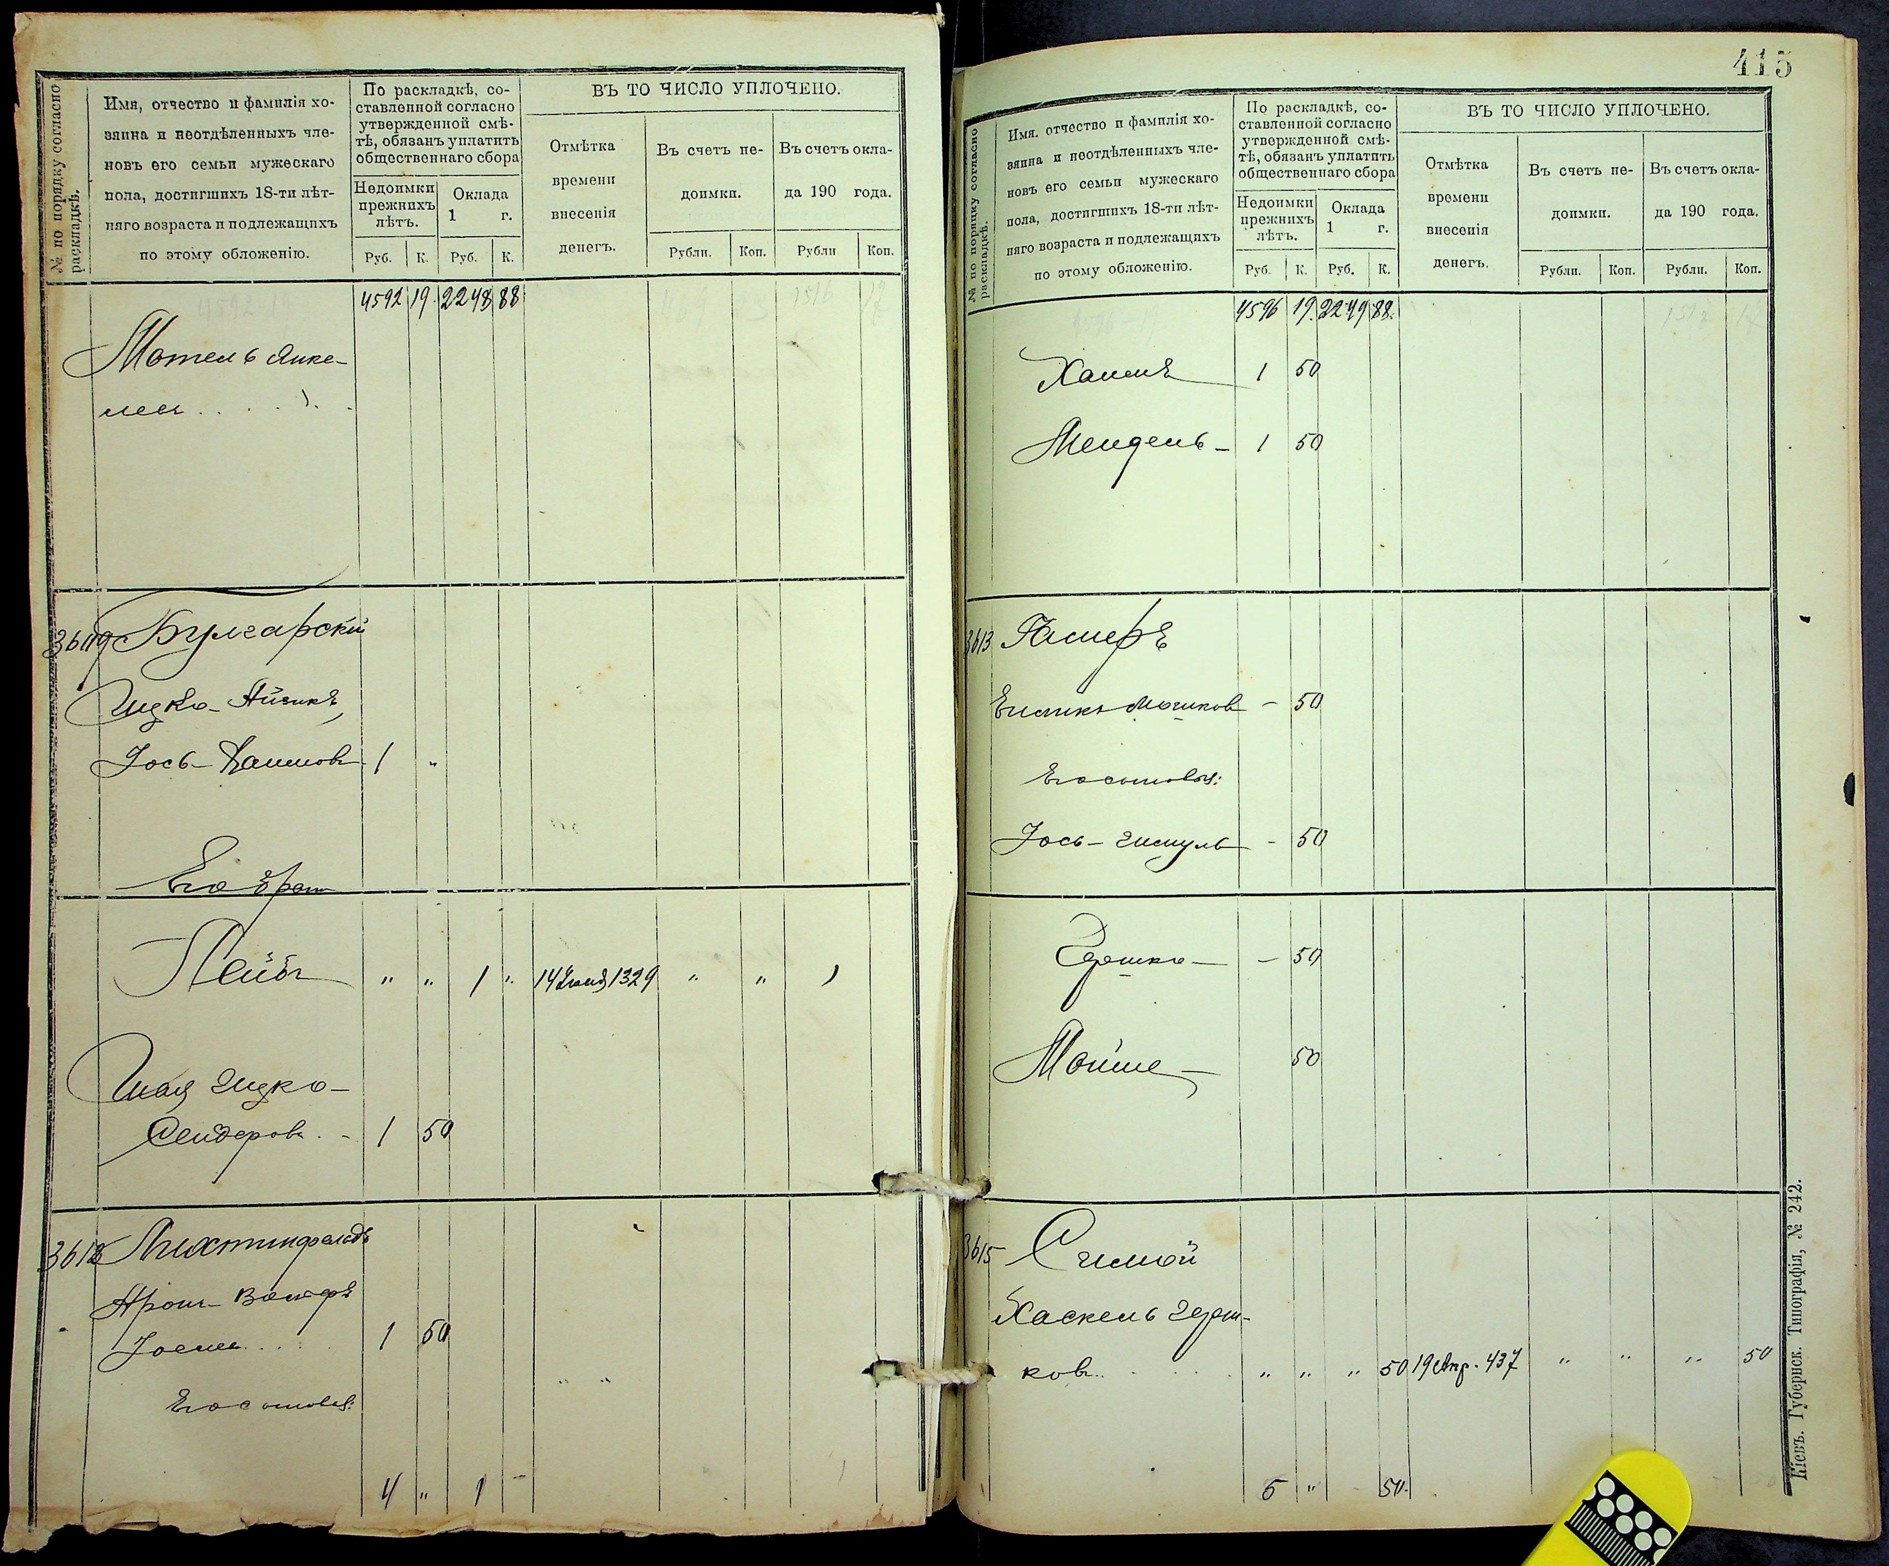 № по порядку согласно раскладкѣ.
Имя, отчество и фамилія хо-
зяина и неотдѣленныхъ чле-
новъ его семьи мужескаго
пола, достигшихъ 18-ти лѣт-
няго возраста и подлежащихъ
по этому обложенію.
По раскладкѣ, со-
ставленной согласно
утвержденной смѣ-
тѣ, обязанъ уплатить
общественнаго сбора
Недоимки
прежнихъ
лѣтъ.
Оклада
1 г.
Руб. К. Руб. К.
ВЪ ТО ЧИСЛО УПЛОЧЕНО.
Отмѣтка
времени
внесенія
денегъ.
Въ счетъ не-
доимки.
Въ счетъ окла-
да 190 года.
Рубли. Коп. Рубли Коп.
4592 19. 2248 88
Мотель Янке-
лев . . . .
3611 Булгарскій
Ицко-Айзикъ,
Іось-Хаимовъ 1 "
Его братъ
Лейба " " 1 " 14 1329 " " 1
Шая Ицко-
Сендеровъ . - 1 50
3612 Лихтинфельдъ
Аронъ-Вольфъ
Іосев . . . 1 50
Его сыновья:
4 " 1 -
415
№ по порядку согласно раскладкѣ.
Имя, отчество и фамилія хо-
зяина и неотдѣленныхъ чле-
новъ его семьи мужескаго
пола, достигшихъ 18-ти лѣт-
няго возраста и подлежащихъ
по этому обложенію.
По раскладкѣ, со-
ставленной согласно
утвержденной смѣ-
тѣ, обязанъ уплатить
общественнаго сбора
Недоимки
прежнихъ
лѣтъ.
Оклада
1 г.
Руб. К. Руб. К.
ВЪ ТО ЧИСЛО УПЛОЧЕНО.
Отмѣтка
времени
внесенія
денегъ.
Въ счетъ не-
доимки.
Въ счетъ окла-
да 190 года.
Рубли. Коп. Рубли. Коп.
4596 19. 2249 88.
Хаимъ 1 50
Мендель - 1 50
3613
Мошков - 50
Его сыновья:
Іось-Шмуль - 50
Гершко - 50
Мойше 50
3615 Симой
Хаскель Герш-
ков . . . . " " " 50 19 Апр. 437 " " " 50
5 " 50.
Кіевъ. Губернск. Типографія, № 242.